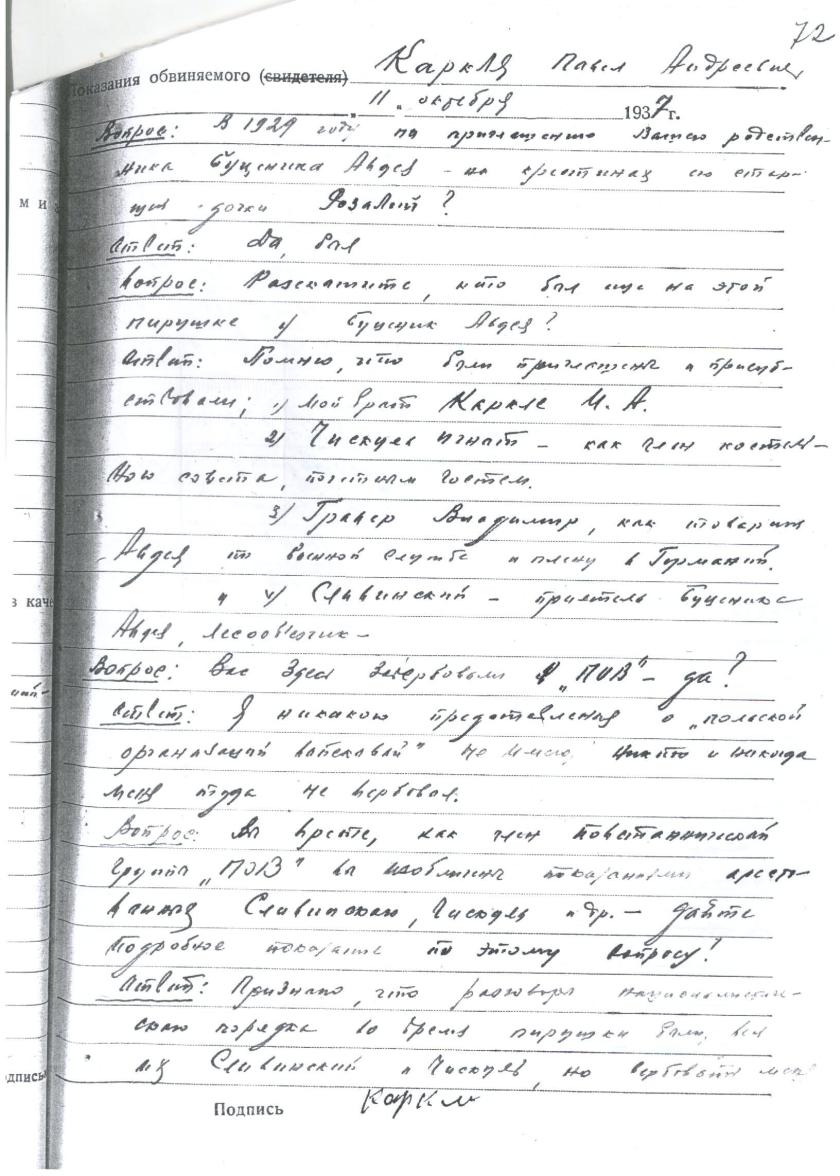 72
Показания обвиняемого (свидетеля) Каркля Павел Андреевич
"11" октября 1937 г.
Вопрос: В 1929 году по приглашению Вашего родствен-
ника Буценика Авдея - на крестинах его стар-
шей дочки Розалии?
Ответ: Да, был
Вопрос: Расскажите, кто был еще на этой
пирушке у Авдея?
Ответ: Помню, что были приглашены и присут-
ствовали; 1) Мой брат Каркле И. А.
2) Чискуль Игнат – как член костель-
ного совета, почетным гостем.
3) Владимир, как товарищ
Авдея по военной службе и плену в Германии.
и 4) Сливинский – приятель Буценика
Авдея, лесооб'езчик –
Вопрос: Вас здесь завербовали в "ПОВ" – да?
Ответ: Я никакого представления о "польской
организации войсковой" не имею, никто и никогда
меня туда не вербовал.
Вопрос: Вы врете, как член повстанческой
группы "ПОВ" вы изобличены показаниями аресто-
ванных Сливинского, Чискуль и др. – дайте
подробное показание по этому вопросу!
Ответ: Признаю, что разговоры националистиче-
ского порядка во время пирушки были, вел
их Сливинский и Чискуль, но вербовать меня
Подпись Каркле
м и
в каче
одпись